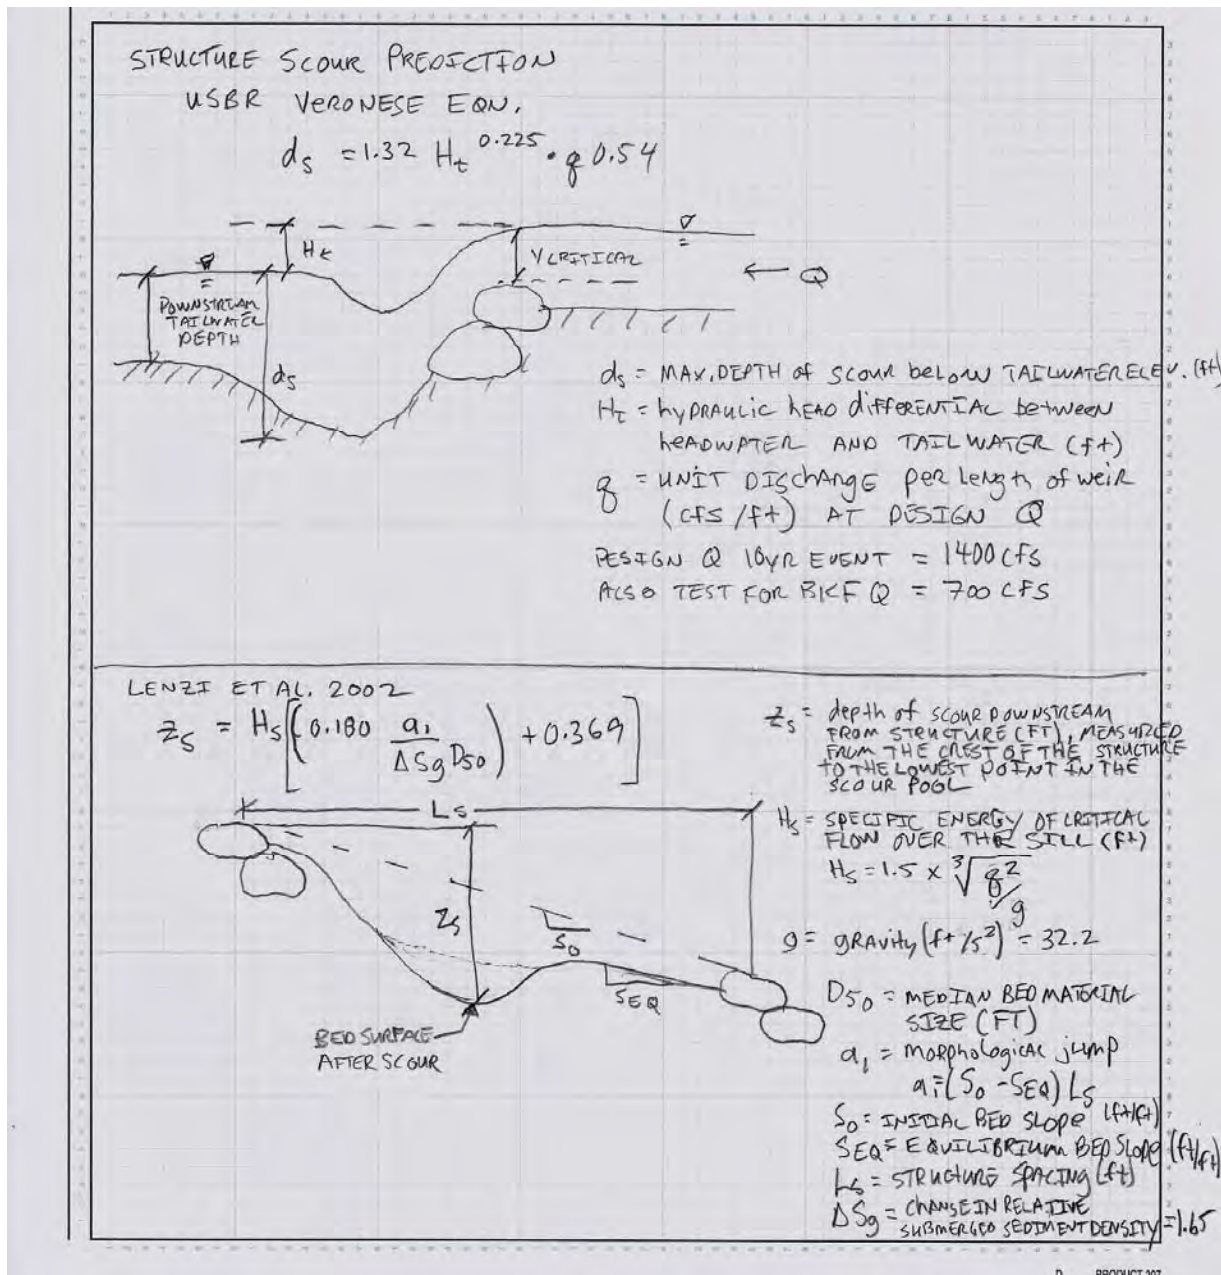 STRUCTURE SCOUR PREDICTION
USBR VERONESE EQN.
ds = 1.32 Ht^0.225 • q 0.54
Ht
YCRITICAL
← Q
DOWNSTREAM
TAILWATER
DEPTH
ds
ds = MAX. DEPTH of SCOUR below TAILWATER ELEV. (ft)
Ht = hyDRAULIC hEAD diffERENTIAL between
hEADWATER AND TAILWATER (ft)
q = UNIT DISchARGE per length of weir
(cfs/ft) AT DESIGN Q
DESIGN Q 10yR EVENT = 1400 cfs
ALSO TEST FOR BKF Q = 700 CFS
LENZI ET AL. 2002
Zs = Hs[(0.180 a1/ΔSg D50) + 0.369]
Zs = depth of SCOUR DOWNSTREAM
FROM STRUCTURE (FT), MEASURED
FROM THE CREST OF THE STRUCTURE
TO THE LOWEST POINT IN THE
SCOUR POOL
Ls
Hs = SPECIFIC ENERGY OF CRITICAL
FLOW OVER THE SILL (Ft)
Hs = 1.5 x ∛q²/g
Zs
So
SEQ
g = gRAVity (ft/s²) = 32.2
BED SURFACE
AFTER SCOUR
D50 = MEDIAN BED MATERIAL
SIZE (FT)
a1 = MORphological jump
a1=(So - SEQ) Ls
So = INITIAL BED SLOPE (ft/ft)
SEQ = EQUILIBRIUM BED SLOPE (ft/ft)
Ls = STRUCTURE SPACING (ft)
ΔSg = CHANGE IN RELATIVE
SUBMERGED SEDIMENT DENSITY = 1.65
PRODUCT 207